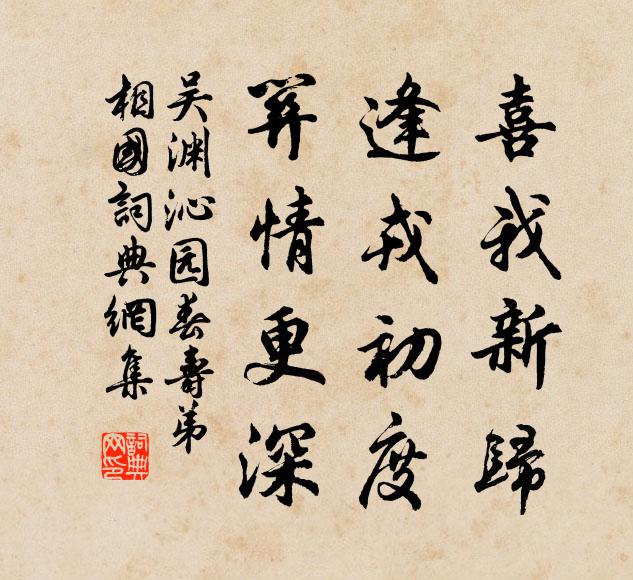 喜我新歸
逢戎初度
算情更深
吴渊沁园春壽弟
相國詞典網集
詞典網印